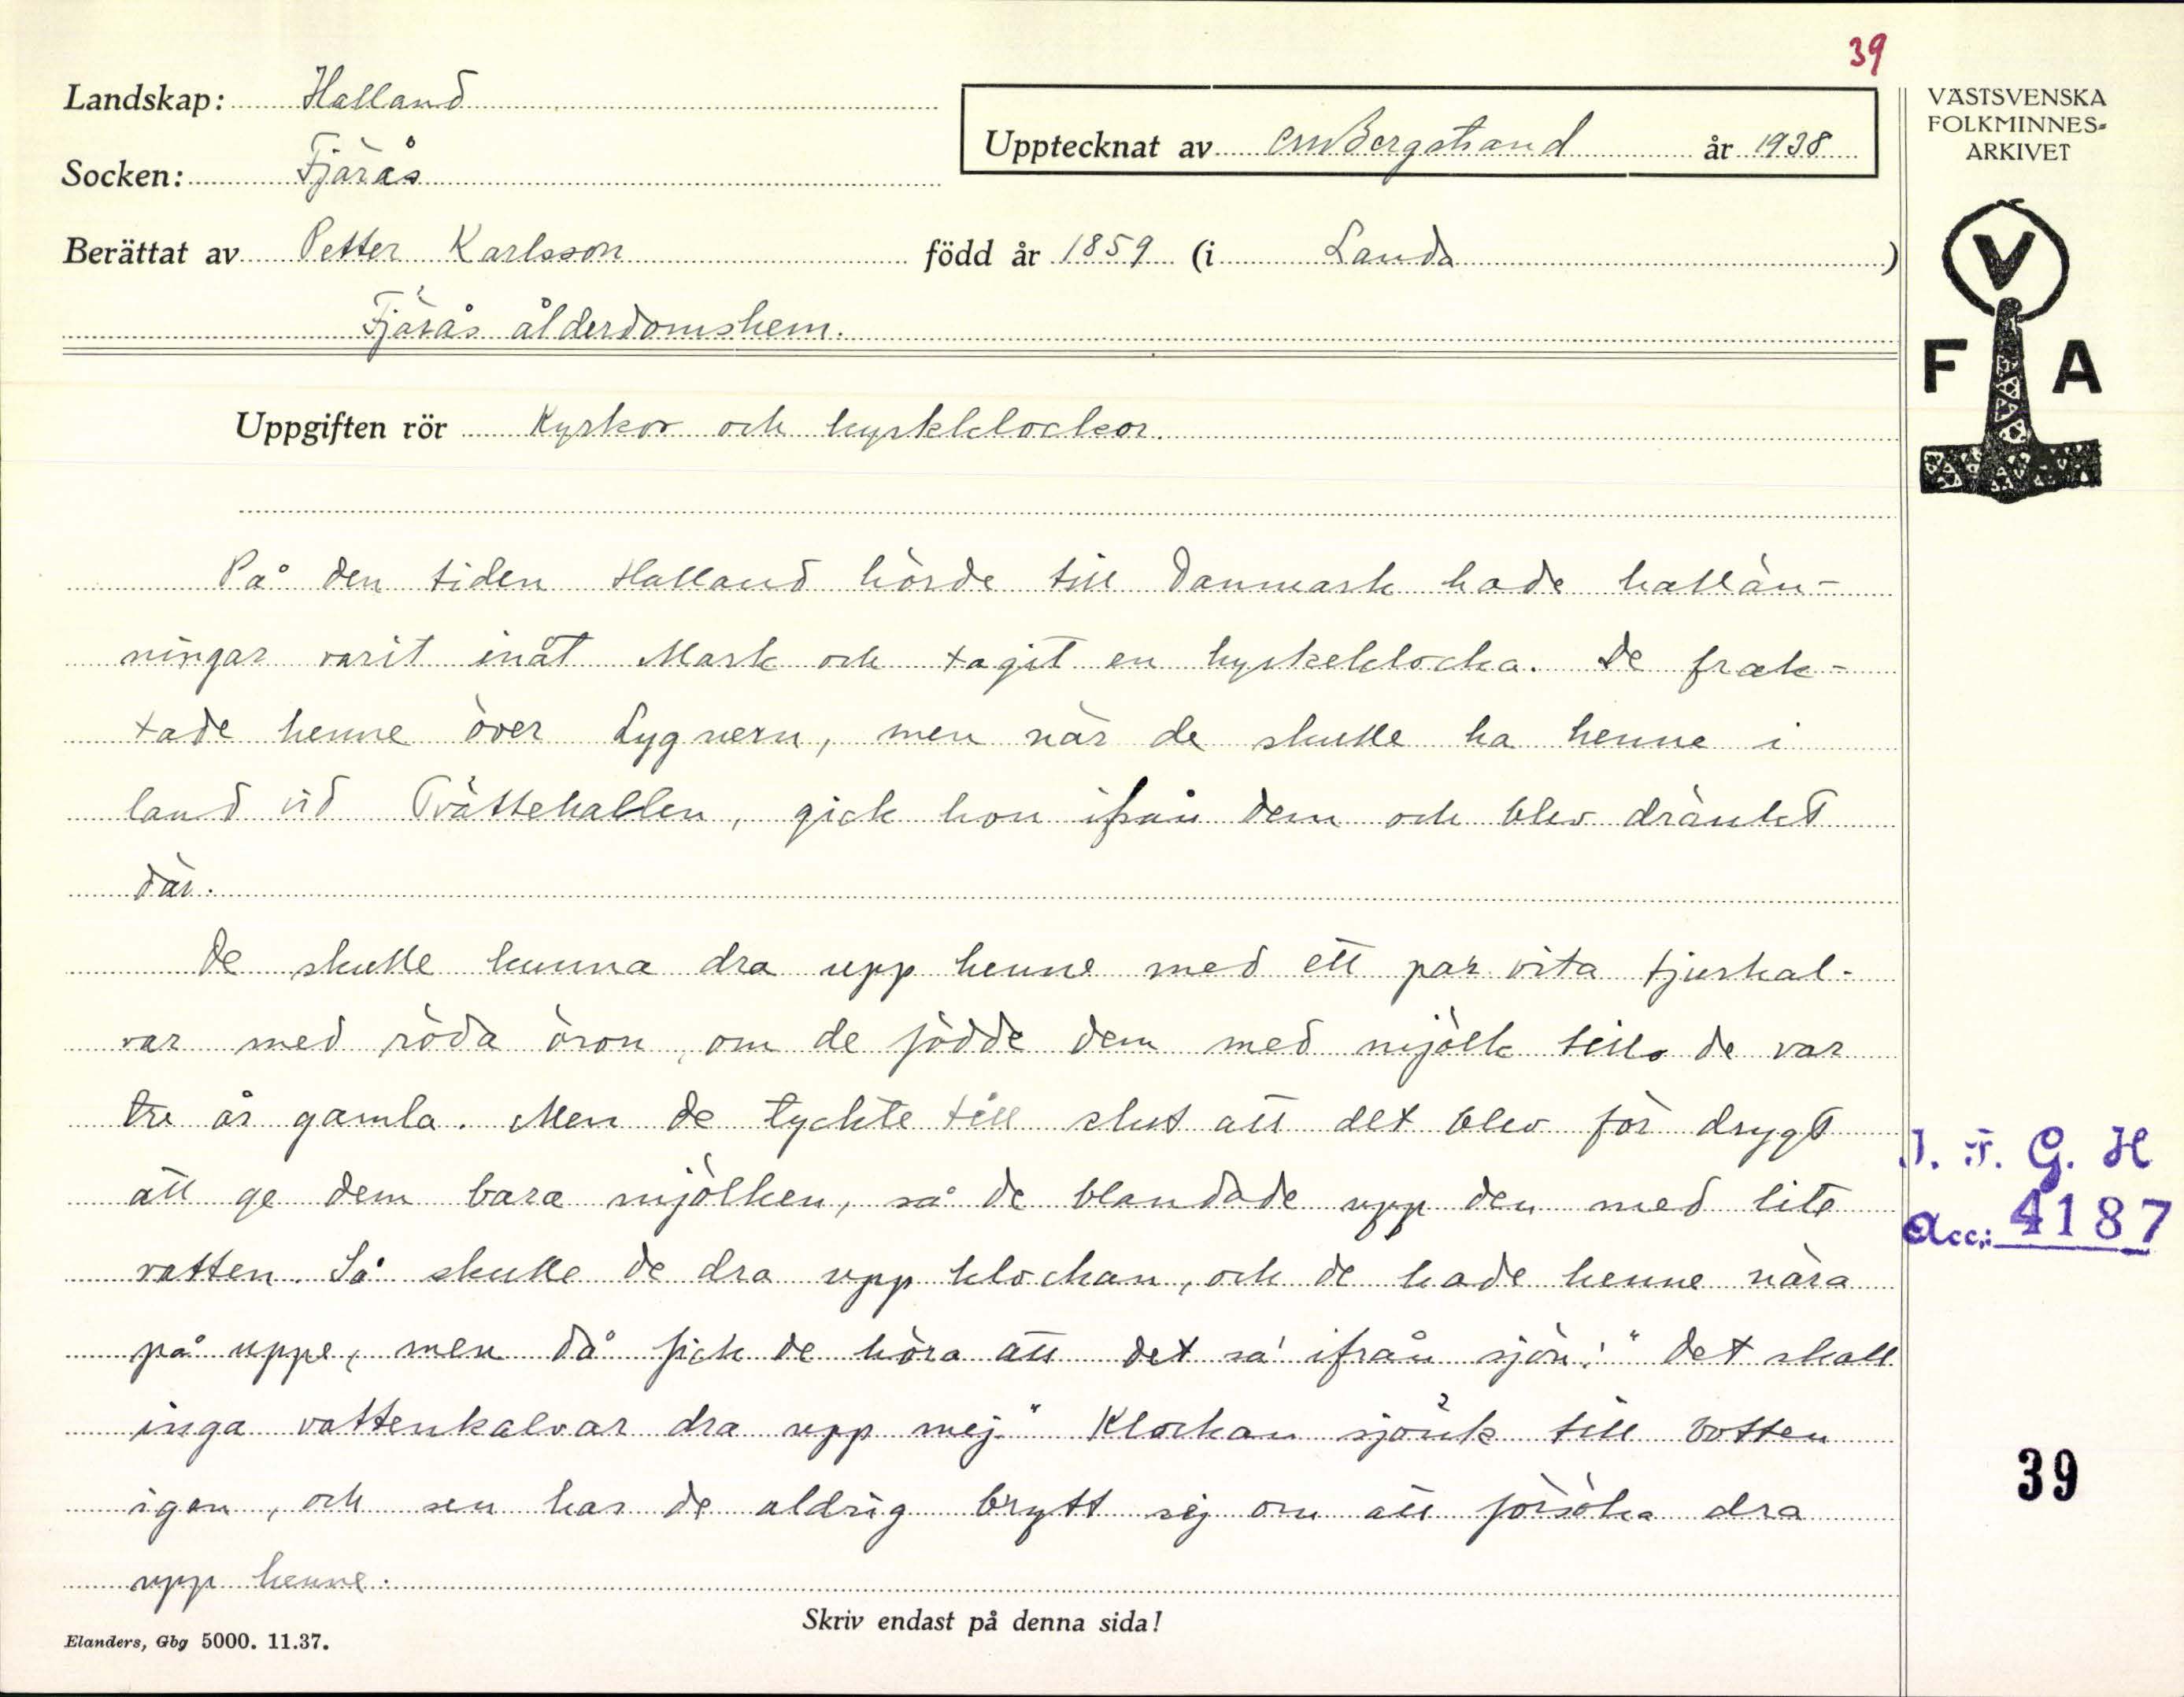 39
Landskap: Halland
Socken: Fjärås
Upptecknat av CMBergstrand år 1938
Berättat av Petter Karlsson född år 1859 (i Landa)
Fjärås ålderdomshem.
VÄSTSVENSKA
FOLKMINNES-
ARKIVET
V
F A
Uppgiften rör Kyrkor och kyrkklockor.
På den tiden Halland hörde till Danmark hade hallän-
ningar varit inåt Mark och tagit en kyrkeklocka. De frak-
tade henne över Lygnern, men när de skulle ha henne i
land vid Tvättehallen, gick hon ifrån dem och blev dränkt
där.
De skulle kunna dra upp henne med ett par vita tjurkal-
var med röda öron, om de födde dem med mjölk tills de var
tre år gamla. Men de tyckte till slut att det blev för drygt
att ge dem bara mjölken, så de blandade upp den med lite
vatten. Så skulle de dra upp klockan, och de hade henne nära
på uppe, men då fick de höra att det sa' ifrån sjön: "Det skall
inga vattenkalvar dra upp mej." Klockan sjönk till botten
igen, och sen har de aldrig brytt sig om att försöka dra
upp henne.
I. F. G. H
Acc.: 4187
39
Skriv endast på denna sida!
Elanders, Gbg 5000. 11.37.